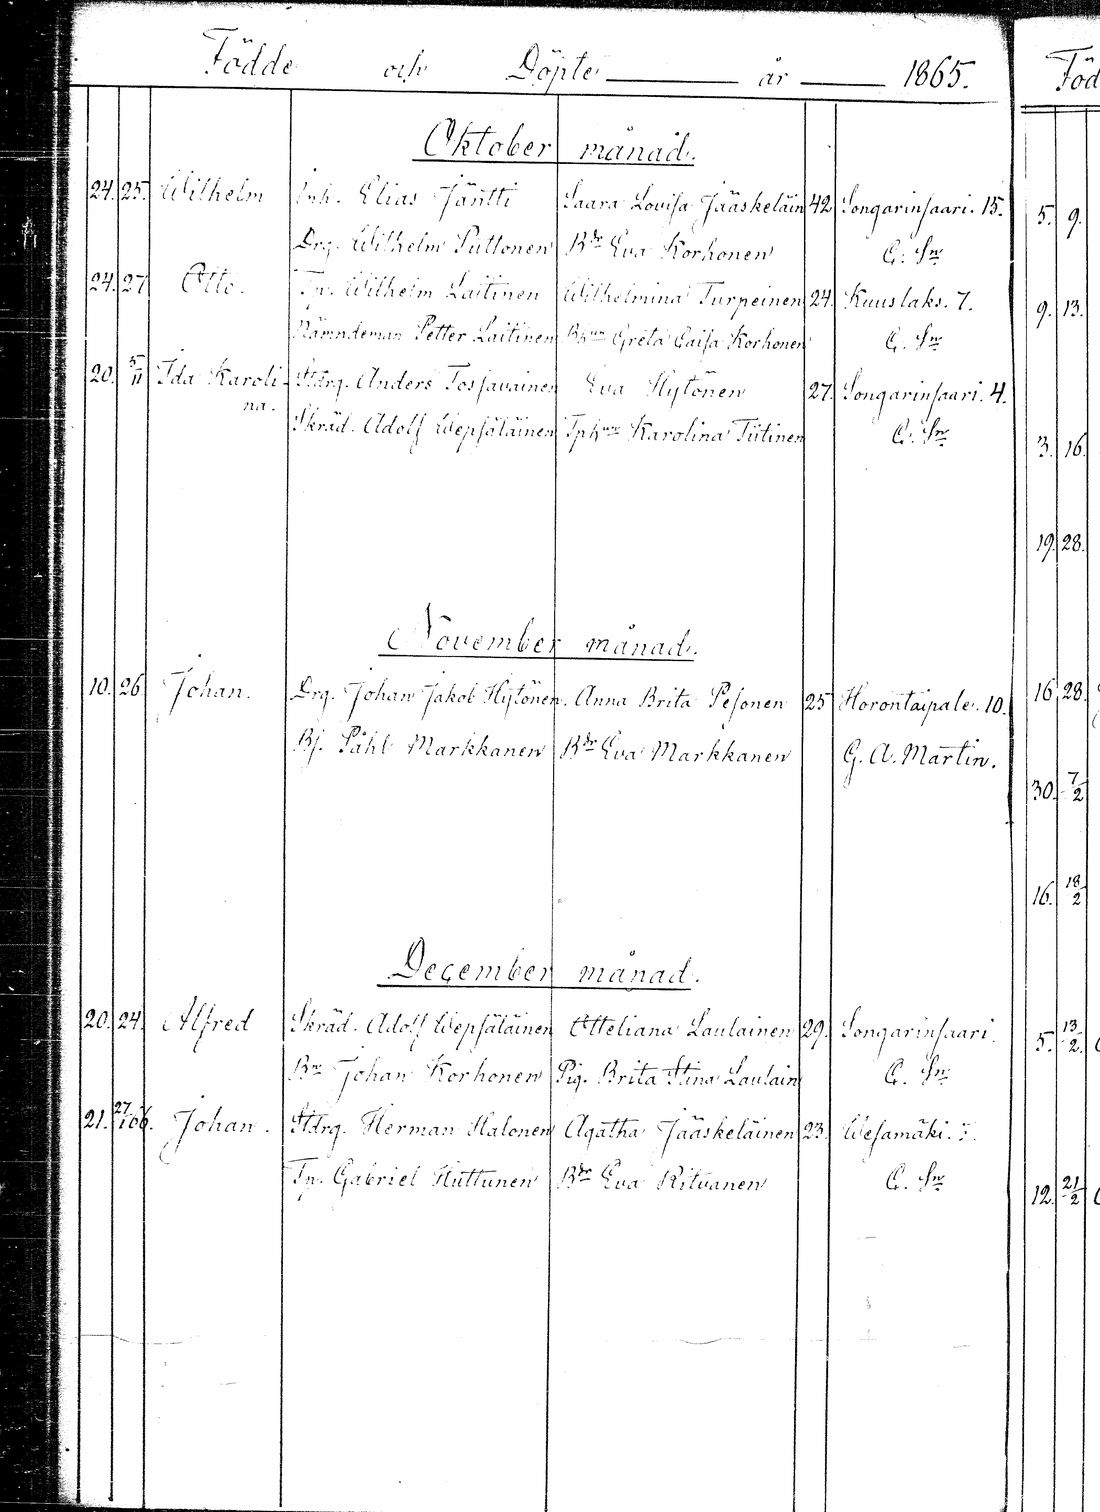 Födde och Döpte år 1865.
Föd
Oktober månad.
24. 25. Wilhelm Inh. Elias Jäntti Saara Lovisa Jääskeläin 42 Songarinsaari. 15.
Drg. Wilhelm Puttonen Bdr Eva Korhonen C. Sn
24. 27 Otto. Tp. Wilhelm Laitinen Wilhelmina Turpeinen 24. Kuuslaks. 7.
Nämndeman Petter Laitinen Greta Caisa Korhonen C. Sn
20. 5/11 Ida Karoli- Stdrg. Anders Tossavainen Eva Hytönen 27. Songarinsaari. 4.
na.
Skräd. Adolf Wepsäläinen Karolina Tiitinen C. Sn
November månad.
10. 26 Johan. Drg. Johan Jakob Hytönen. Anna Brita Pesonen 25 Horontaipale. 10.
Bs. Påhl Markkanen Bdr Eva Markkanen G. A. Martin.
December månad.
20. 24. Alfred Skräd. Adolf Wepsäläinen Otteliana Laulainen 29. Songarinsaari.
Bn Johan Korhonen Pig. Brita Stina Laulain C. Sn
21. 27/1 66. Johan. Stdrg. Herman Halonen Agatha Jääskeläinen 23. Wesamäki.
Tp. Gabriel Huttunen Bdr Eva Ritvanen C. Sn
5. 9.
9. 13.
3. 16.
19. 28.
16 28.
30. 7/2
16. 18/2
5. 13/2.
12. 21/2